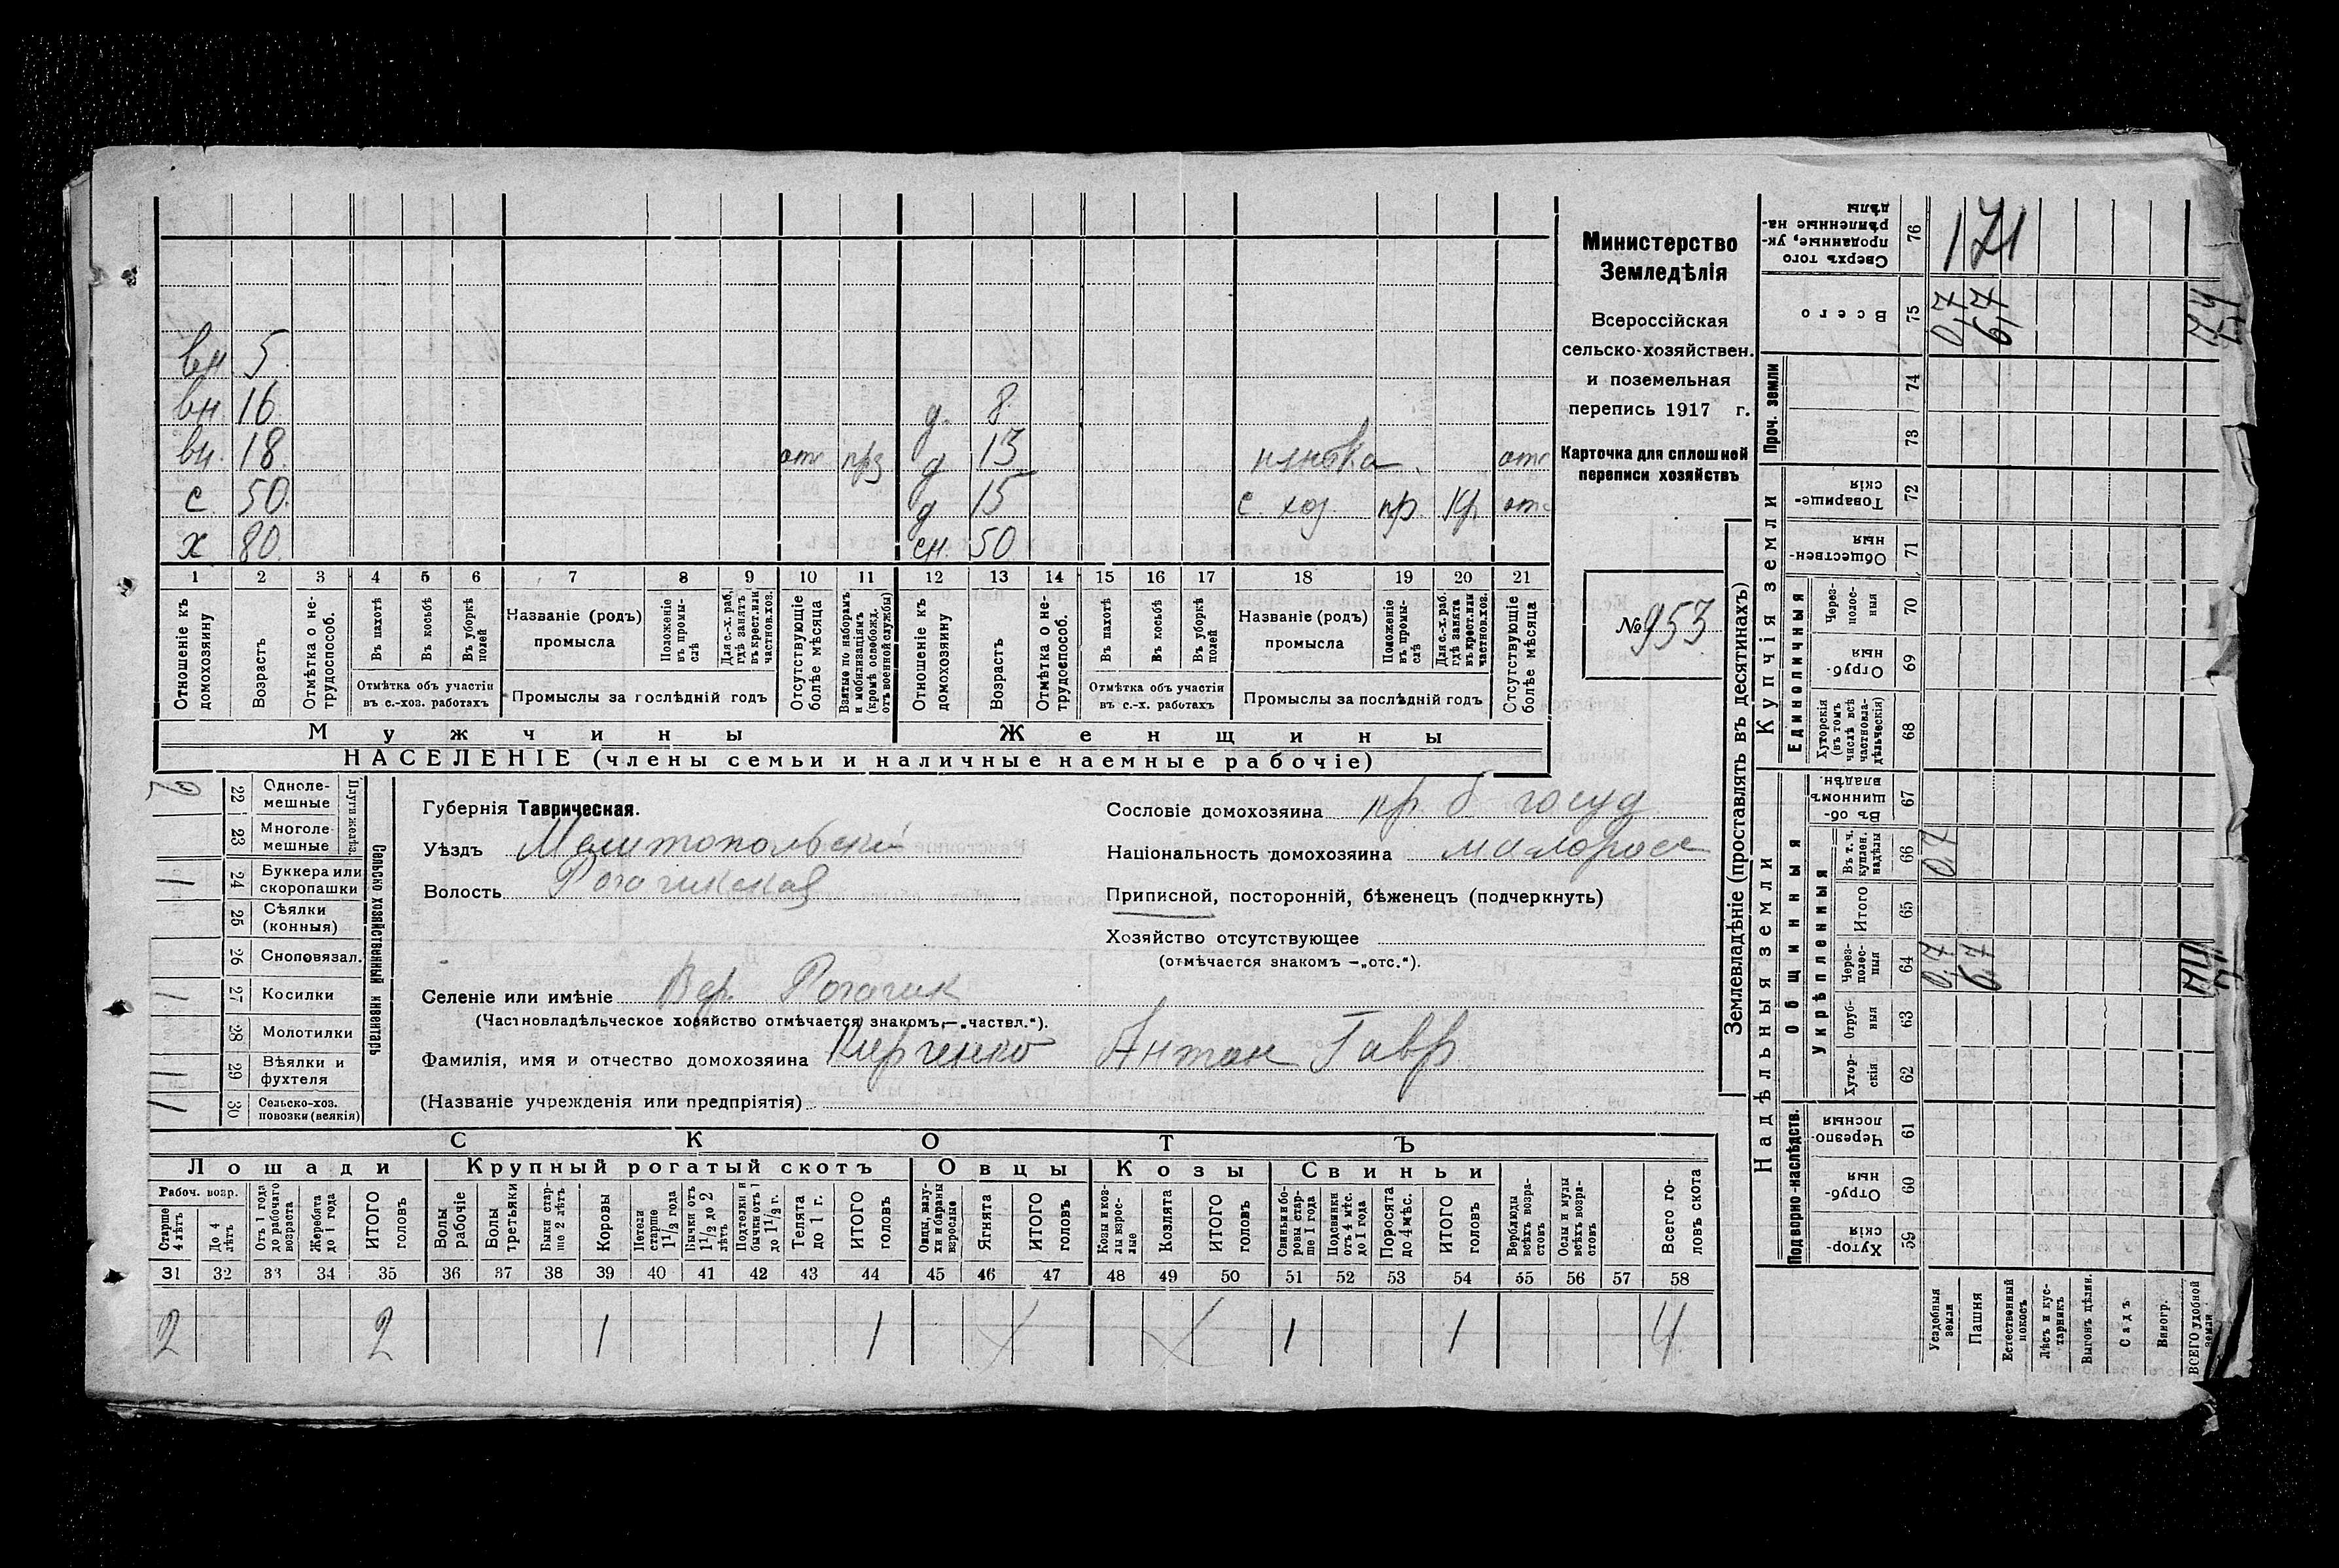 вн 5
вн 16 д. 8.
вн. 18 отс д 13 отс
с 50. д 15 с. хоз. пр. кр отс
х 80. сн. 50
1 2 3 4 5 6 7 8 9 10 11 12 13 14 15 16 17 18 19 20 21
Отношеніе къ домохозяину
Возрастъ
Отмѣтка о не-трудоспособ.
Въ пахотѣ
Въ косьбѣ
Въ уборкѣ полей
Отмѣтка объ участіи въ с.-хоз. работахъ
Названіе (родъ) промысла
Положеніе въ промы-слѣ
Для с.-х. раб, гдѣ занятъ въ крест. или частнов. хоз.
Промыслы за послѣдній годъ
Отсутствующіе болѣе мѣсяца
Взятые по наборамъ и мобилизаціямъ (кромѣ освобожд. отъ военной службы)
Отношеніе къ домохозяину
Возрастъ
Отмѣтка о не-трудоспособ.
Въ пахотѣ
Въ косьбѣ
Въ уборкѣ полей
Отмѣтка объ участіи въ с.-х. работахъ
Названіе (родъ) промысла
Положеніе въ промы-слѣ
Для с.-х. раб. гдѣ занята въ крест. или частнов. хоз.
Промыслы за послѣдній годъ
Отсутствующіе болѣе мѣсяца
Мужчины Женщины
НАСЕЛЕНІЕ (члены семьи и наличные наемные рабочіе)
Министерство
Земледѣлія
Всероссійская
сельско-хозяйствен.
и поземельная
перепись 1917 г.
Карточка для сплошной
переписи хозяйствъ
№ 953
Сельско хозяйственный инвентарь
Плуги желѣз.
22 Одноле-мешные
23 Многоле мешные
24 Буккера или скоропашки 1
25 Сѣялки (конныя)
26 Сноповязал.
27 Косилки 1
28 Молотилки
29 Вѣялки и фухтеля 1
30 Сельско-хоз. повозки (всякія) 1
Губернія Таврическая.
Уѣздъ Мелитопольскій
Волость Рогачикская
Селеніе или имѣніе Вер. Рогачик
(Частновладѣльческое хозяйство отмѣчается знакомъ,—„частвл.“).
Фамилія, имя и отчество домохозяина Кирченко Антон Гавр.
(Названіе учрежденія или предпріятія)
Сословіе домохозяина пр. б госуд
Національность домохозяина малоросс
Приписной, посторонній, бѣженецъ (подчеркнуть)
Хозяйство отсутствующее
(отмѣчается знакомъ —„отс.“).
СКОТЪ
Лошади Крупный рогатый скотъ Овцы Козы Свиньи
Рабоч. возр.
Старше 4 лѣтъ
До 4 лѣтъ
Отъ 1 года до рабочаго возраста
Жеребята до 1 года
ИТОГО головъ
Волы рабочіе
Волы третьяки
Быки стар-ше 2 лѣтъ
Коровы
Нетели старше 1½ года
Бычки отъ 1½ до 2 лѣтъ
Подтелки и бычки отъ 1 до 1½ г.
Телята до 1 г.
ИТОГО головъ
Овцы, валу-хи и бараны взрослые
Ягнята
ИТОГО головъ
Козы и коз-лы взрос-лые
Козлята
ИТОГО головъ
Свиньи и бо-ровы стар-ше 1 года
Подсвинки отъ 4 мѣс. до 1 года
Поросята до 4 мѣс.
ИТОГО головъ
Верблюды всѣхъ возра-стовъ
Ослы и мулы всѣхъ возра-стовъ
Всего го-ловъ скота
31 32 33 34 35 36 37 38 39 40 41 42 43 44 45 46 47 48 49 50 51 52 53 54 55 56 57 58
2 2 1 1 1 1 4
Землевладѣніе (проставлять въ десятинахъ)
76 Сверхъ того проданные, ук-рѣпленные на-дѣлы
75 Всего
Купчія земли
Проч. земли
74
73
72 Товарище-скія
71 Обществен-ныя
Единоличныя
70 Через-полос-ныя
69 Отруб-ныя
68 Хуторскія (въ томъ числѣ всѣ частновла-дѣльческія)
Надѣльныя земли
Общинныя
67 Въ об-щинномъ владѣн.
Укрѣпленныя
66 Въ т.ч. куплен. надѣлы
65 Итого
64 Через-полос-ныя
63 Отруб-ныя
62 Хутор-скія
Подворно-наслѣдств.
61 Черезпо-лосныя
60 Отруб-ныя
59 Хутор-скія
Усадебныя земли
Пашня
Естественный покосъ
Лѣсъ и кус-тарникъ
Выгонъ цѣлин.
Садъ
Виногр.
ВСЕГО удобной земли